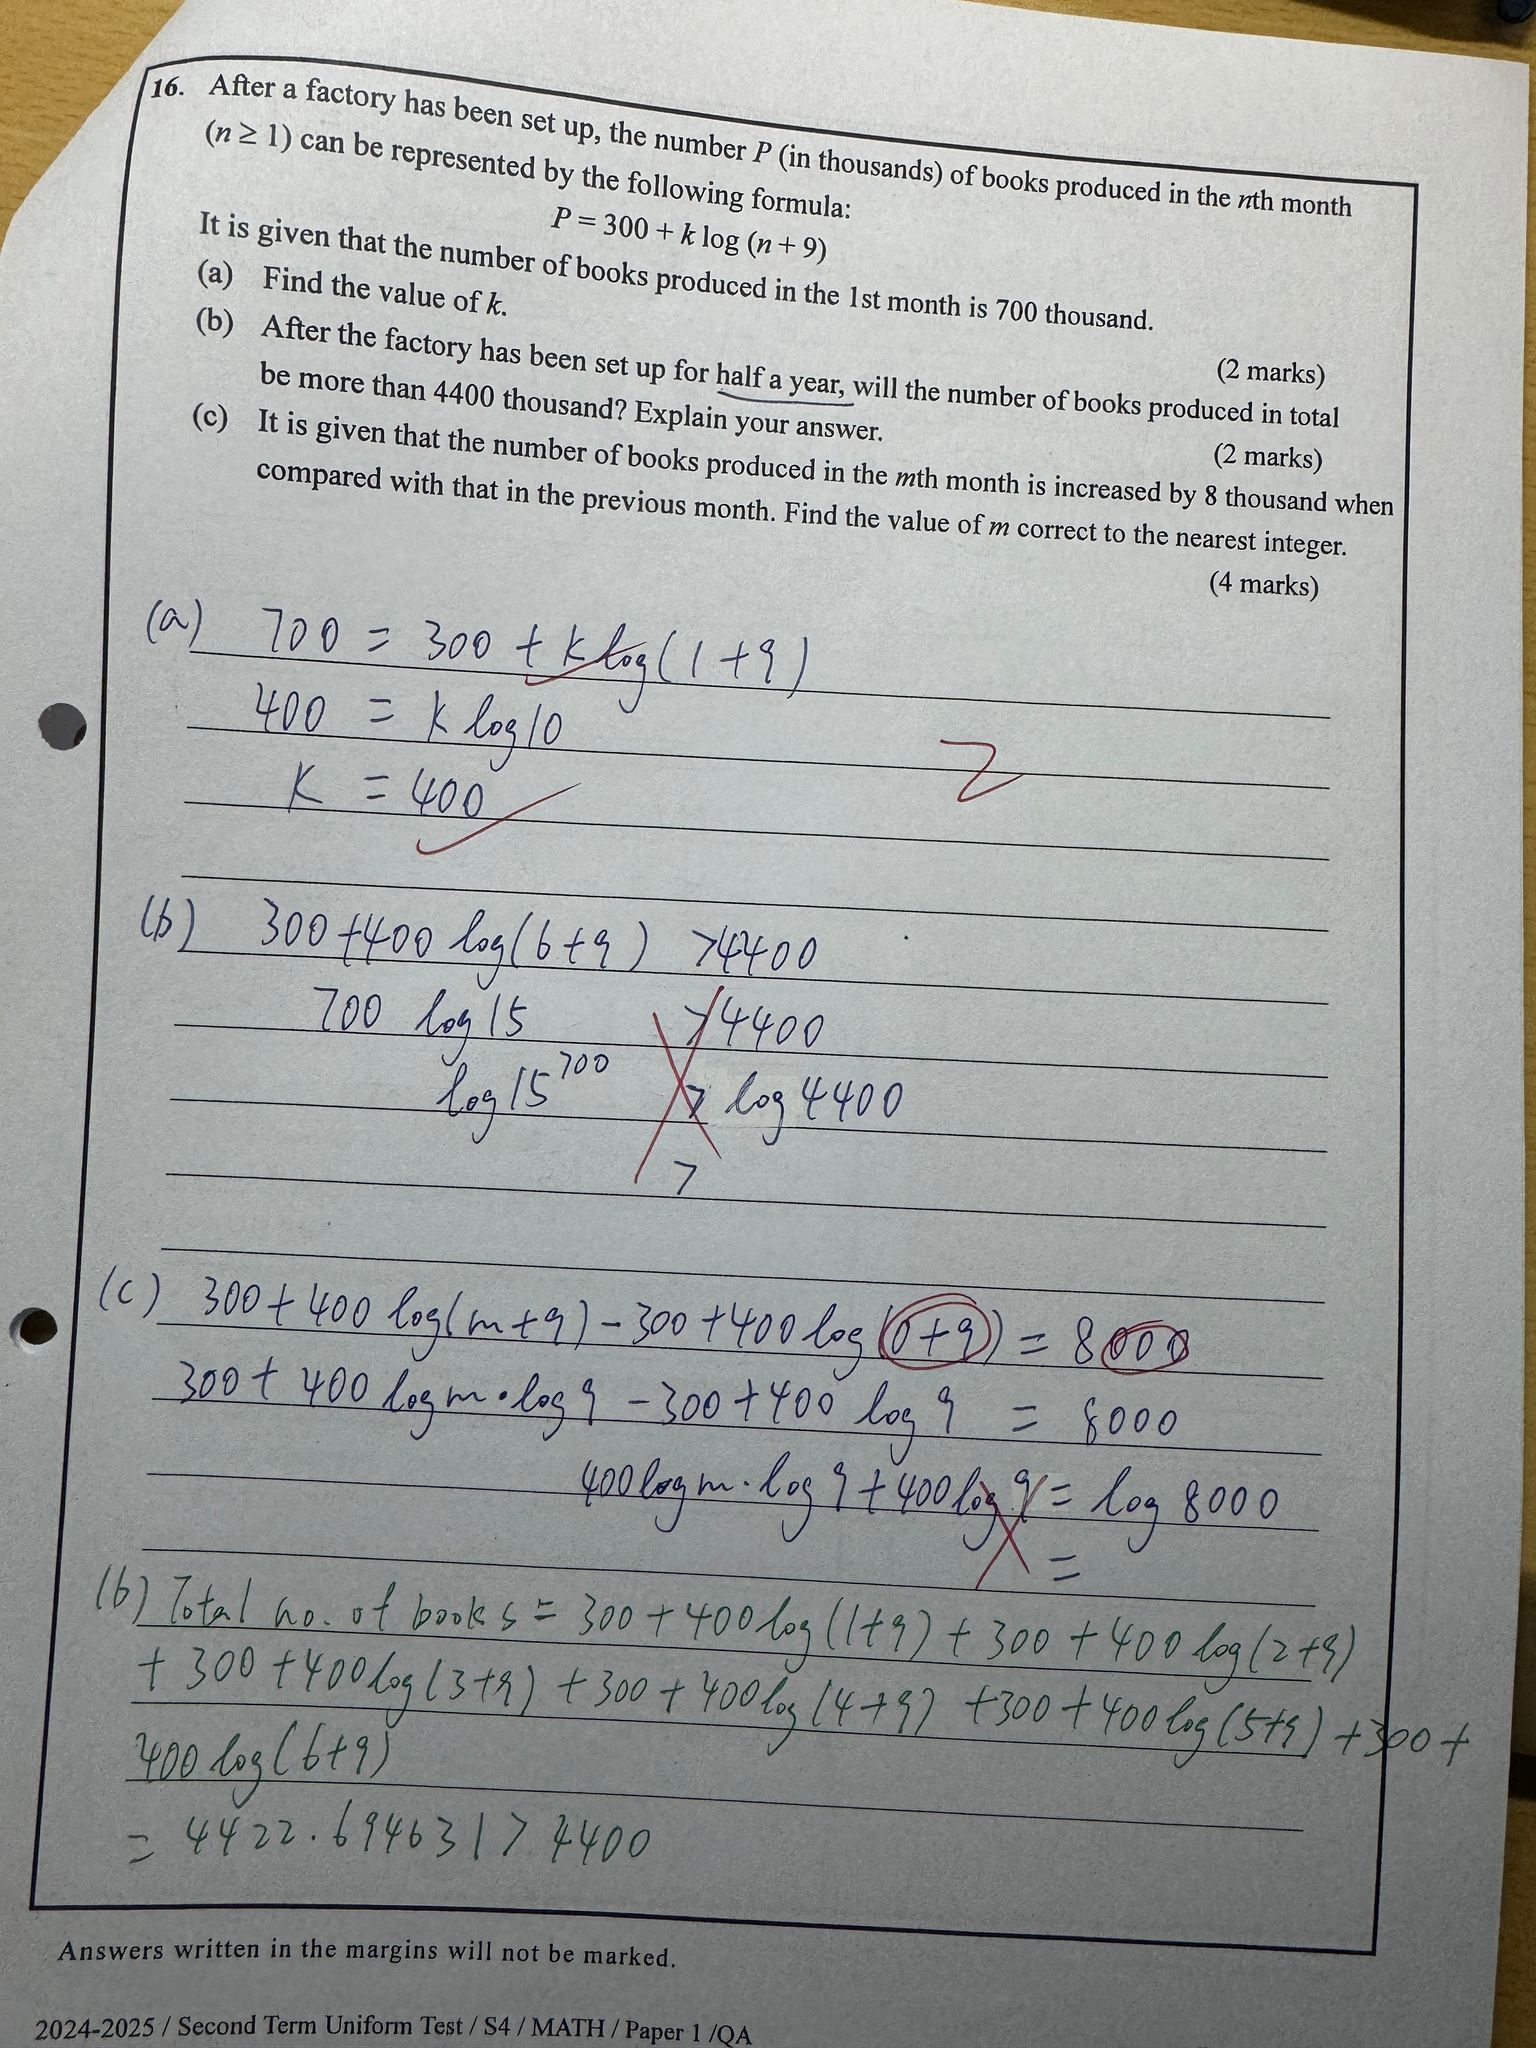 16. After a factory has been set up, the number P (in thousands) of books produced in the nth month
(n ≥ 1) can be represented by the following formula:
P = 300 + k log (n + 9)
It is given that the number of books produced in the 1st month is 700 thousand.
(a) Find the value of k.
(2 marks)
(b) After the factory has been set up for half a year, will the number of books produced in total
be more than 4400 thousand? Explain your answer.
(2 marks)
(c) It is given that the number of books produced in the mth month is increased by 8 thousand when
compared with that in the previous month. Find the value of m correct to the nearest integer.
(4 marks)
(a) 700 = 300 + k log(1+9)
400 = k log 10
k = 400
2
(b) 300+400 log(6+9) >4400
700 log 15 >4400
log 15^700 > log 4400
>
(c) 300+400 log(m+9)-300+400 log(0+9) = 8000
300+400 log m·log 9 -300+400 log 9 = 8000
400 log m·log 9+400 log 9 = log 8000
=
(b) Total no. of books = 300+400 log(1+9) + 300 + 400 log(2+9)
+ 300 +400 log(3+9) +300+400 log(4+9) +300+400 log(5+9) +300+
400 log(6+9)
= 4422.694631 > 4400
Answers written in the margins will not be marked.
2024-2025 / Second Term Uniform Test / S4 / MATH / Paper 1 /QA